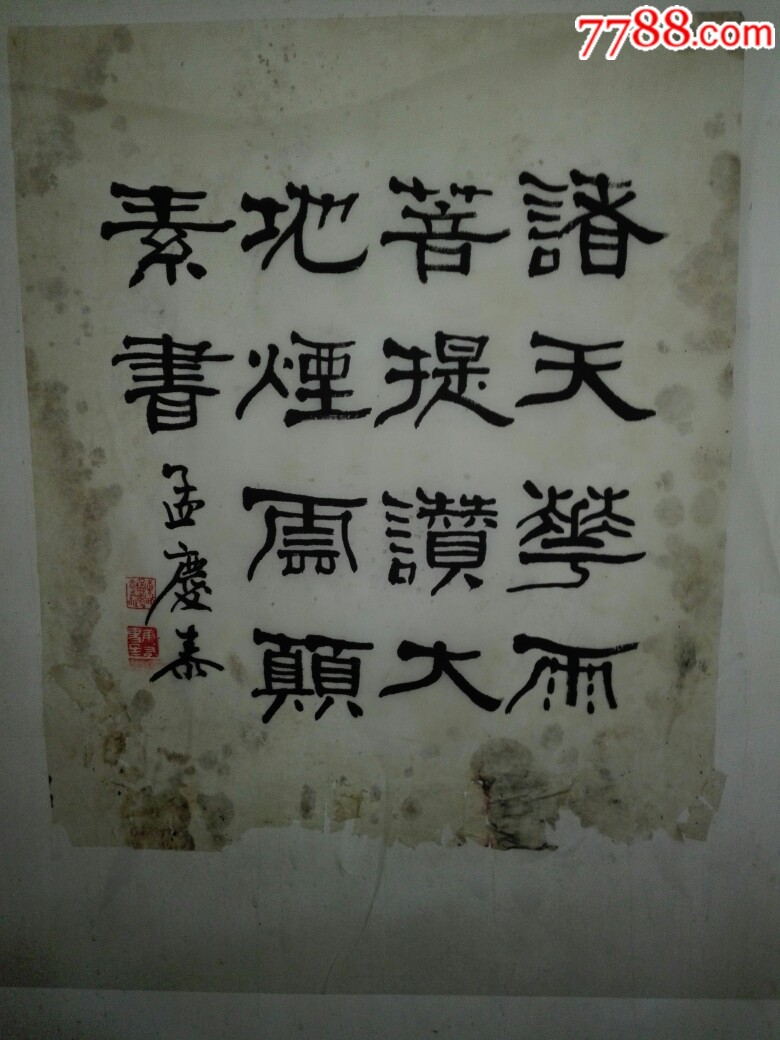 7788.com
諸天華雨
菩提讚大
地煙雲顛
素書
孟慶泰